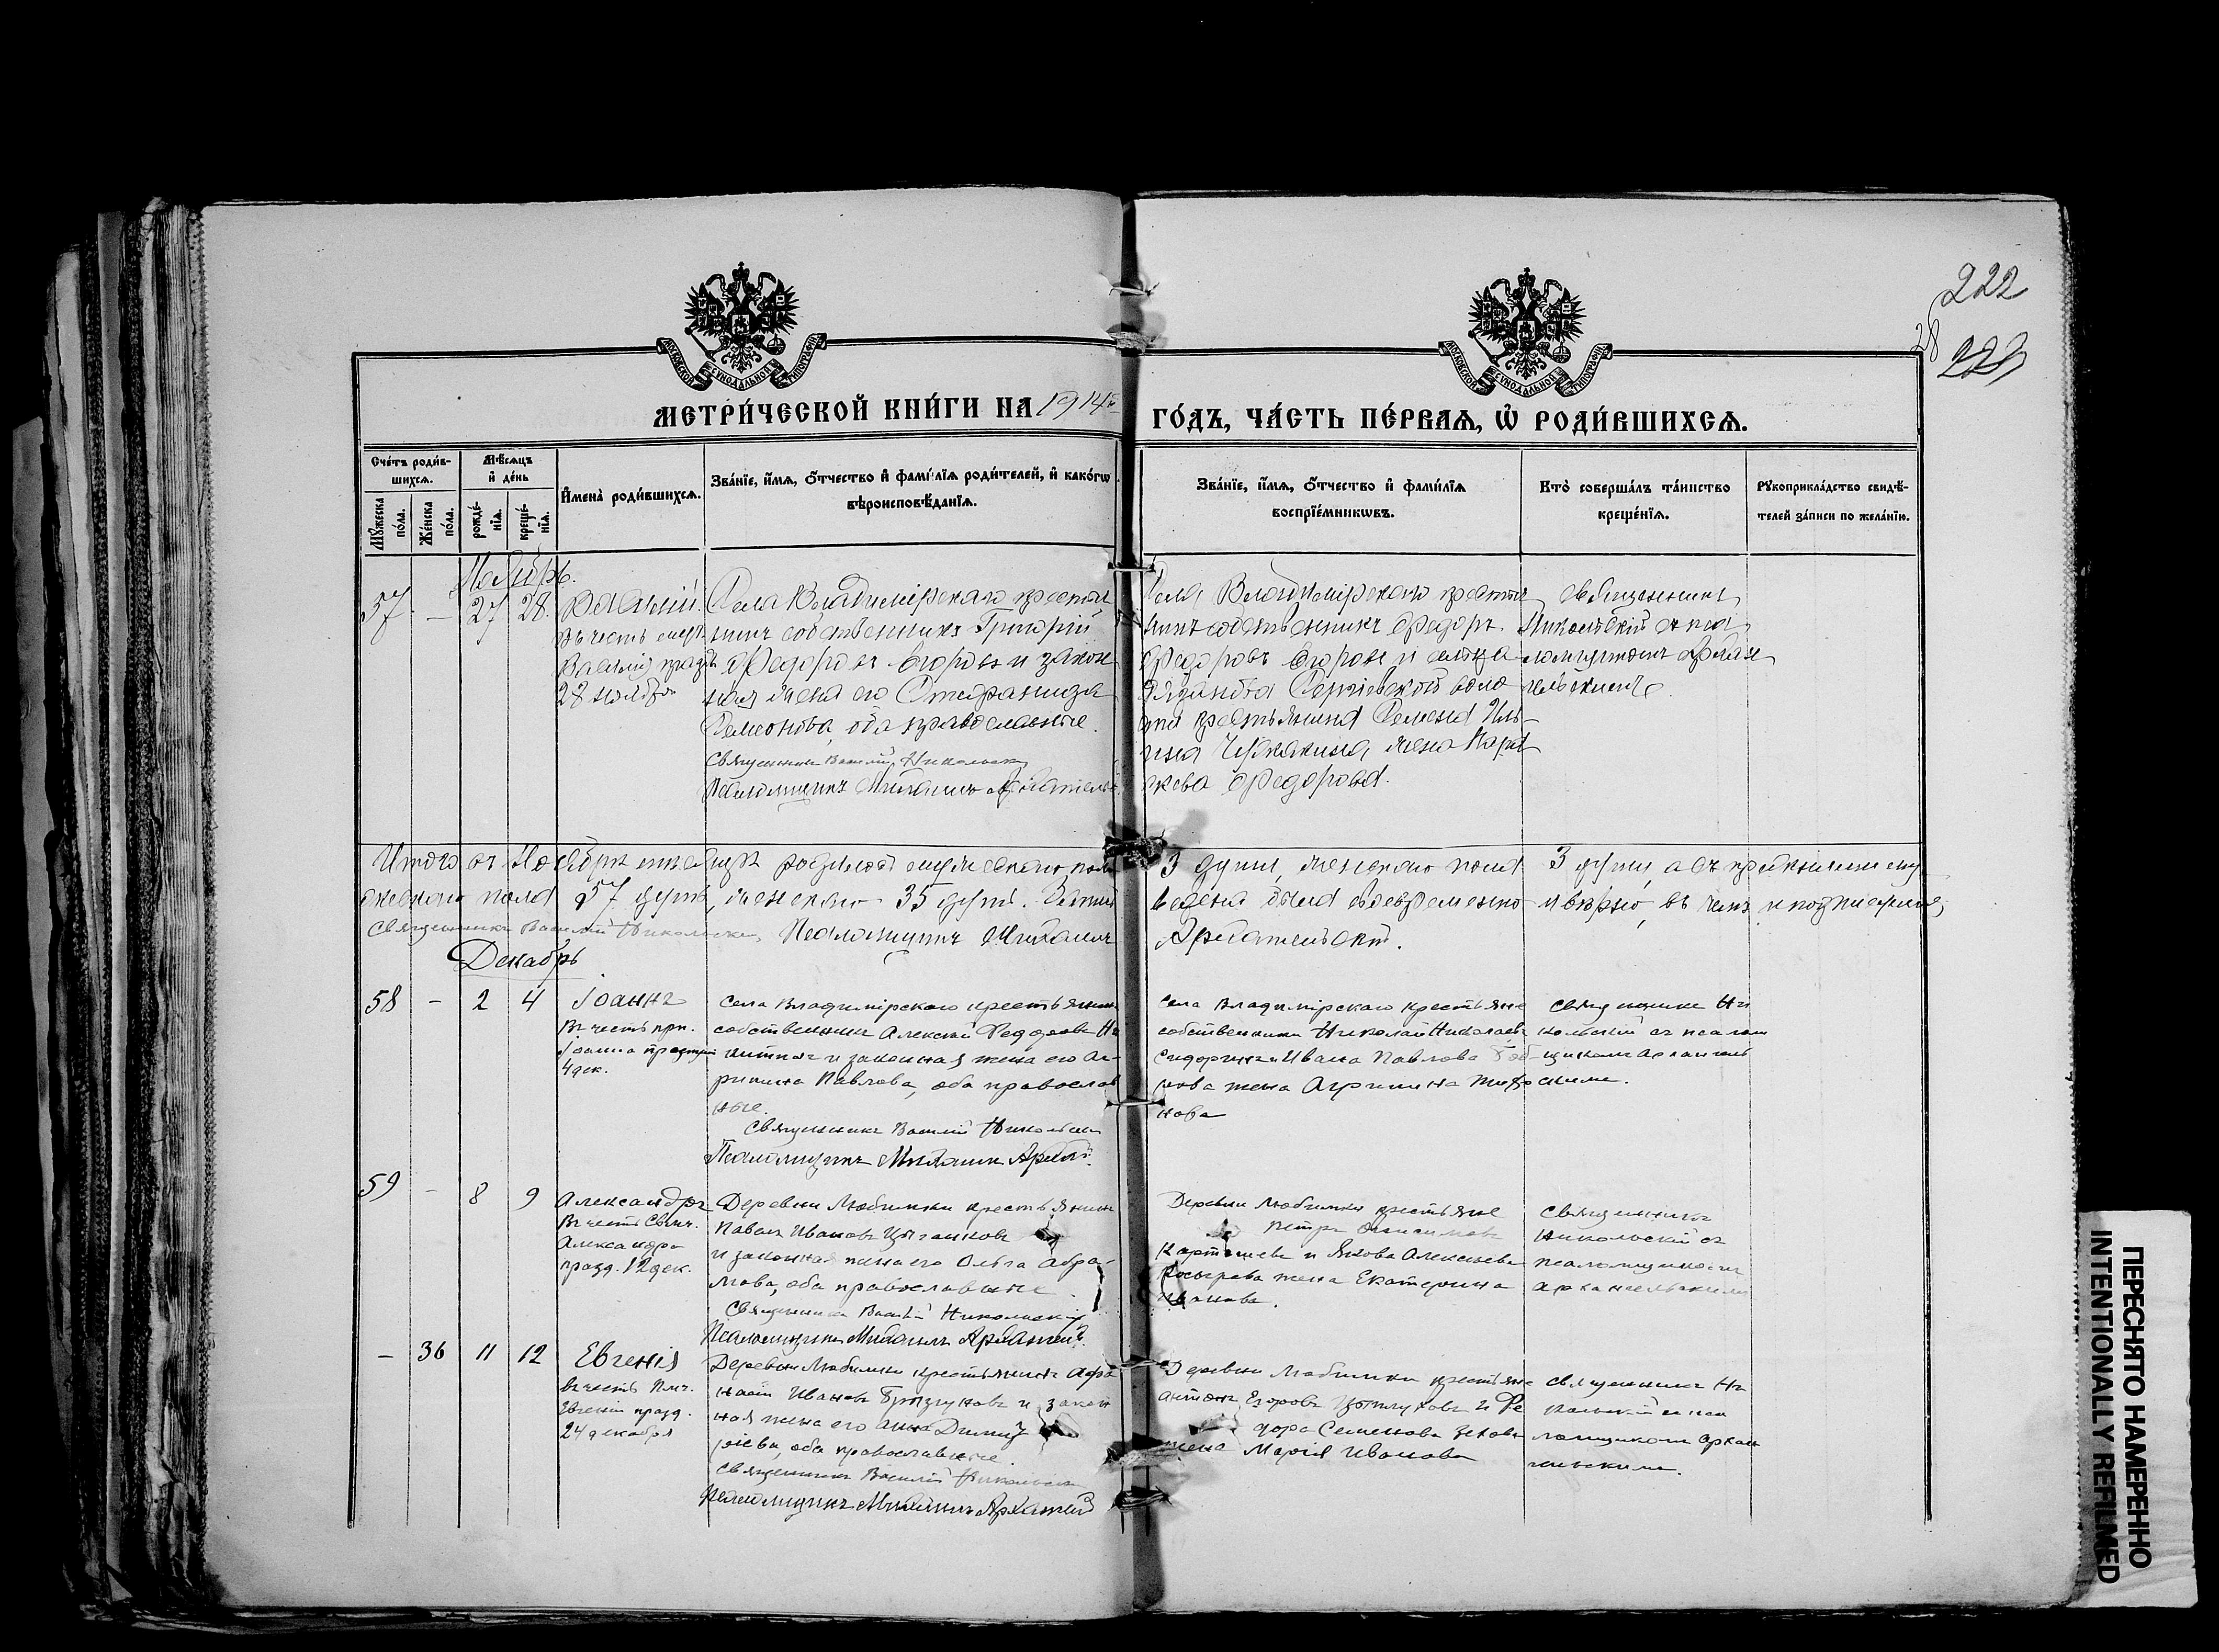 222
28
223
МОСКОВСКОЙ СѴНОДАЛЬНОЙ ТИПОГРАФІИ
МОСКОВСКОЙ СѴНОДАЛЬНОЙ ТИПОГРАФІИ
МЕТРИ́ЧЕСКОЙ КНИ́ГИ НА 1914й ГО́ДЪ, ЧА́СТЬ ПЕ́РВАѦ, Ѡ҆ РОДИ́ВШИХСѦ.
Сче́тъ роди́в-
шихсѧ.
Мꙋ́жеска по́ла.
Же́нска по́ла.
Мѣ́сѧцъ
и҆ де́нь
рожде́-
нїѧ.
креще́-
нїѧ.
И҆мена̀ роди́вшихсѧ.
Зва́нїе, и҆́мѧ, ѻ҆́тчество и҆ фами́лїѧ роди́телей, и҆ како́гѡ
вѣроисповѣ́данїѧ.
Зва́нїе, и҆́мѧ, ѻ҆́тчество и҆ фами́лїѧ
воспрїе́мникѡвъ.
Кто̀ соверша́лъ та́инство
креще́нїѧ.
Рꙋкоприкла́дство свидѣ́-
телей за́писи по жела́нїю.
Ноябрь.
57 — 27 28. Василій.
Въ честь
Василія
28 ноября
Села Владимірскаго крестья
нинъ собственникъ Григорій
Федоровъ Егоровъ и закон
ная жена его Стефанида
Семенова, оба православные.
Священникъ Василій Никольскій
Псаломщикъ Михаилъ Архангельс
Села Владимірскаго крестья
нинъ собственникъ Федоръ
Федоровъ Егоровъ и
Сергіевской воло
сти крестьянина Семена Иль-
ина жена Парас
кева Федорова.
Священникъ
Никольскій съ пса
ломщикомъ Архан
гельскимъ.
Итого въ Ноябрѣ мѣсяцѣ родилось мужескаго пола 3 души, женскаго пола 3 души, а съ прежними му
жескаго пола 57 душъ, женскаго 35 душъ. ведена была своевременно и вѣрно, въ чемъ и подписуемся,
Священникъ Василій Никольскій, Псаломщикъ Михаилъ Архангельскій.
Декабрь
58 - 2 4 Іоаннъ
Въ честь прп.
Іоанна
4 дек.
Села Владимірскаго крестьянинъ
собственникъ Алексѣй Федоровъ Ни
китинъ и законная жена его Аг-
рипина Павлова, оба православ
ные.
Священникъ Василій Никольскій
Псаломщикъ Михаилъ Архан.
Села Владимірскаго крестьяне
собственники Николай Николаевъ
Сидоринъ и Ивана Павлова
жена Агрипина
нова
Священникъ Ни
кольскій съ псалом
щикомъ Архангель
скимъ.
59 - 8 9 Александръ
Въ честь Свмч.
Александра
празд. 12 дек.
Деревни Любимки крестьянинъ
Павелъ Ивановъ Цыганковъ
и законная жена его Ольга Абра-
мова, оба православные
Священникъ Василій Никольскій
Псаломщикъ Михаилъ Архангел.
Деревни Любимки крестьяне
Петръ Анисимовъ
Карташевъ и Якова Алексѣева
Косырева жена Екатерина
Иванова.
Священникъ
Никольскій съ
псаломщикомъ
Архангельскимъ
— 36 11 12 Евгенія
въ честь Пмч.
Евгеніи празд.
24 декабря
Деревни Любимки крестьянинъ Афа
насій Ивановъ и закон
ная жена его Анна Димит
ріева, оба православные.
Священникъ Василій Никольскій
Псаломщикъ Михаилъ Архангел
Деревни Любимки крестьяне
Антонъ Егоровъ и Фе
дора Семенова
жена Марія Иванова
Священникъ Ни
кольскій съ пса
ломщикомъ Архан
гельскимъ.
ПЕРЕСНЯТО НАМЕРЕННО
INTENTIONALLY REFILMED